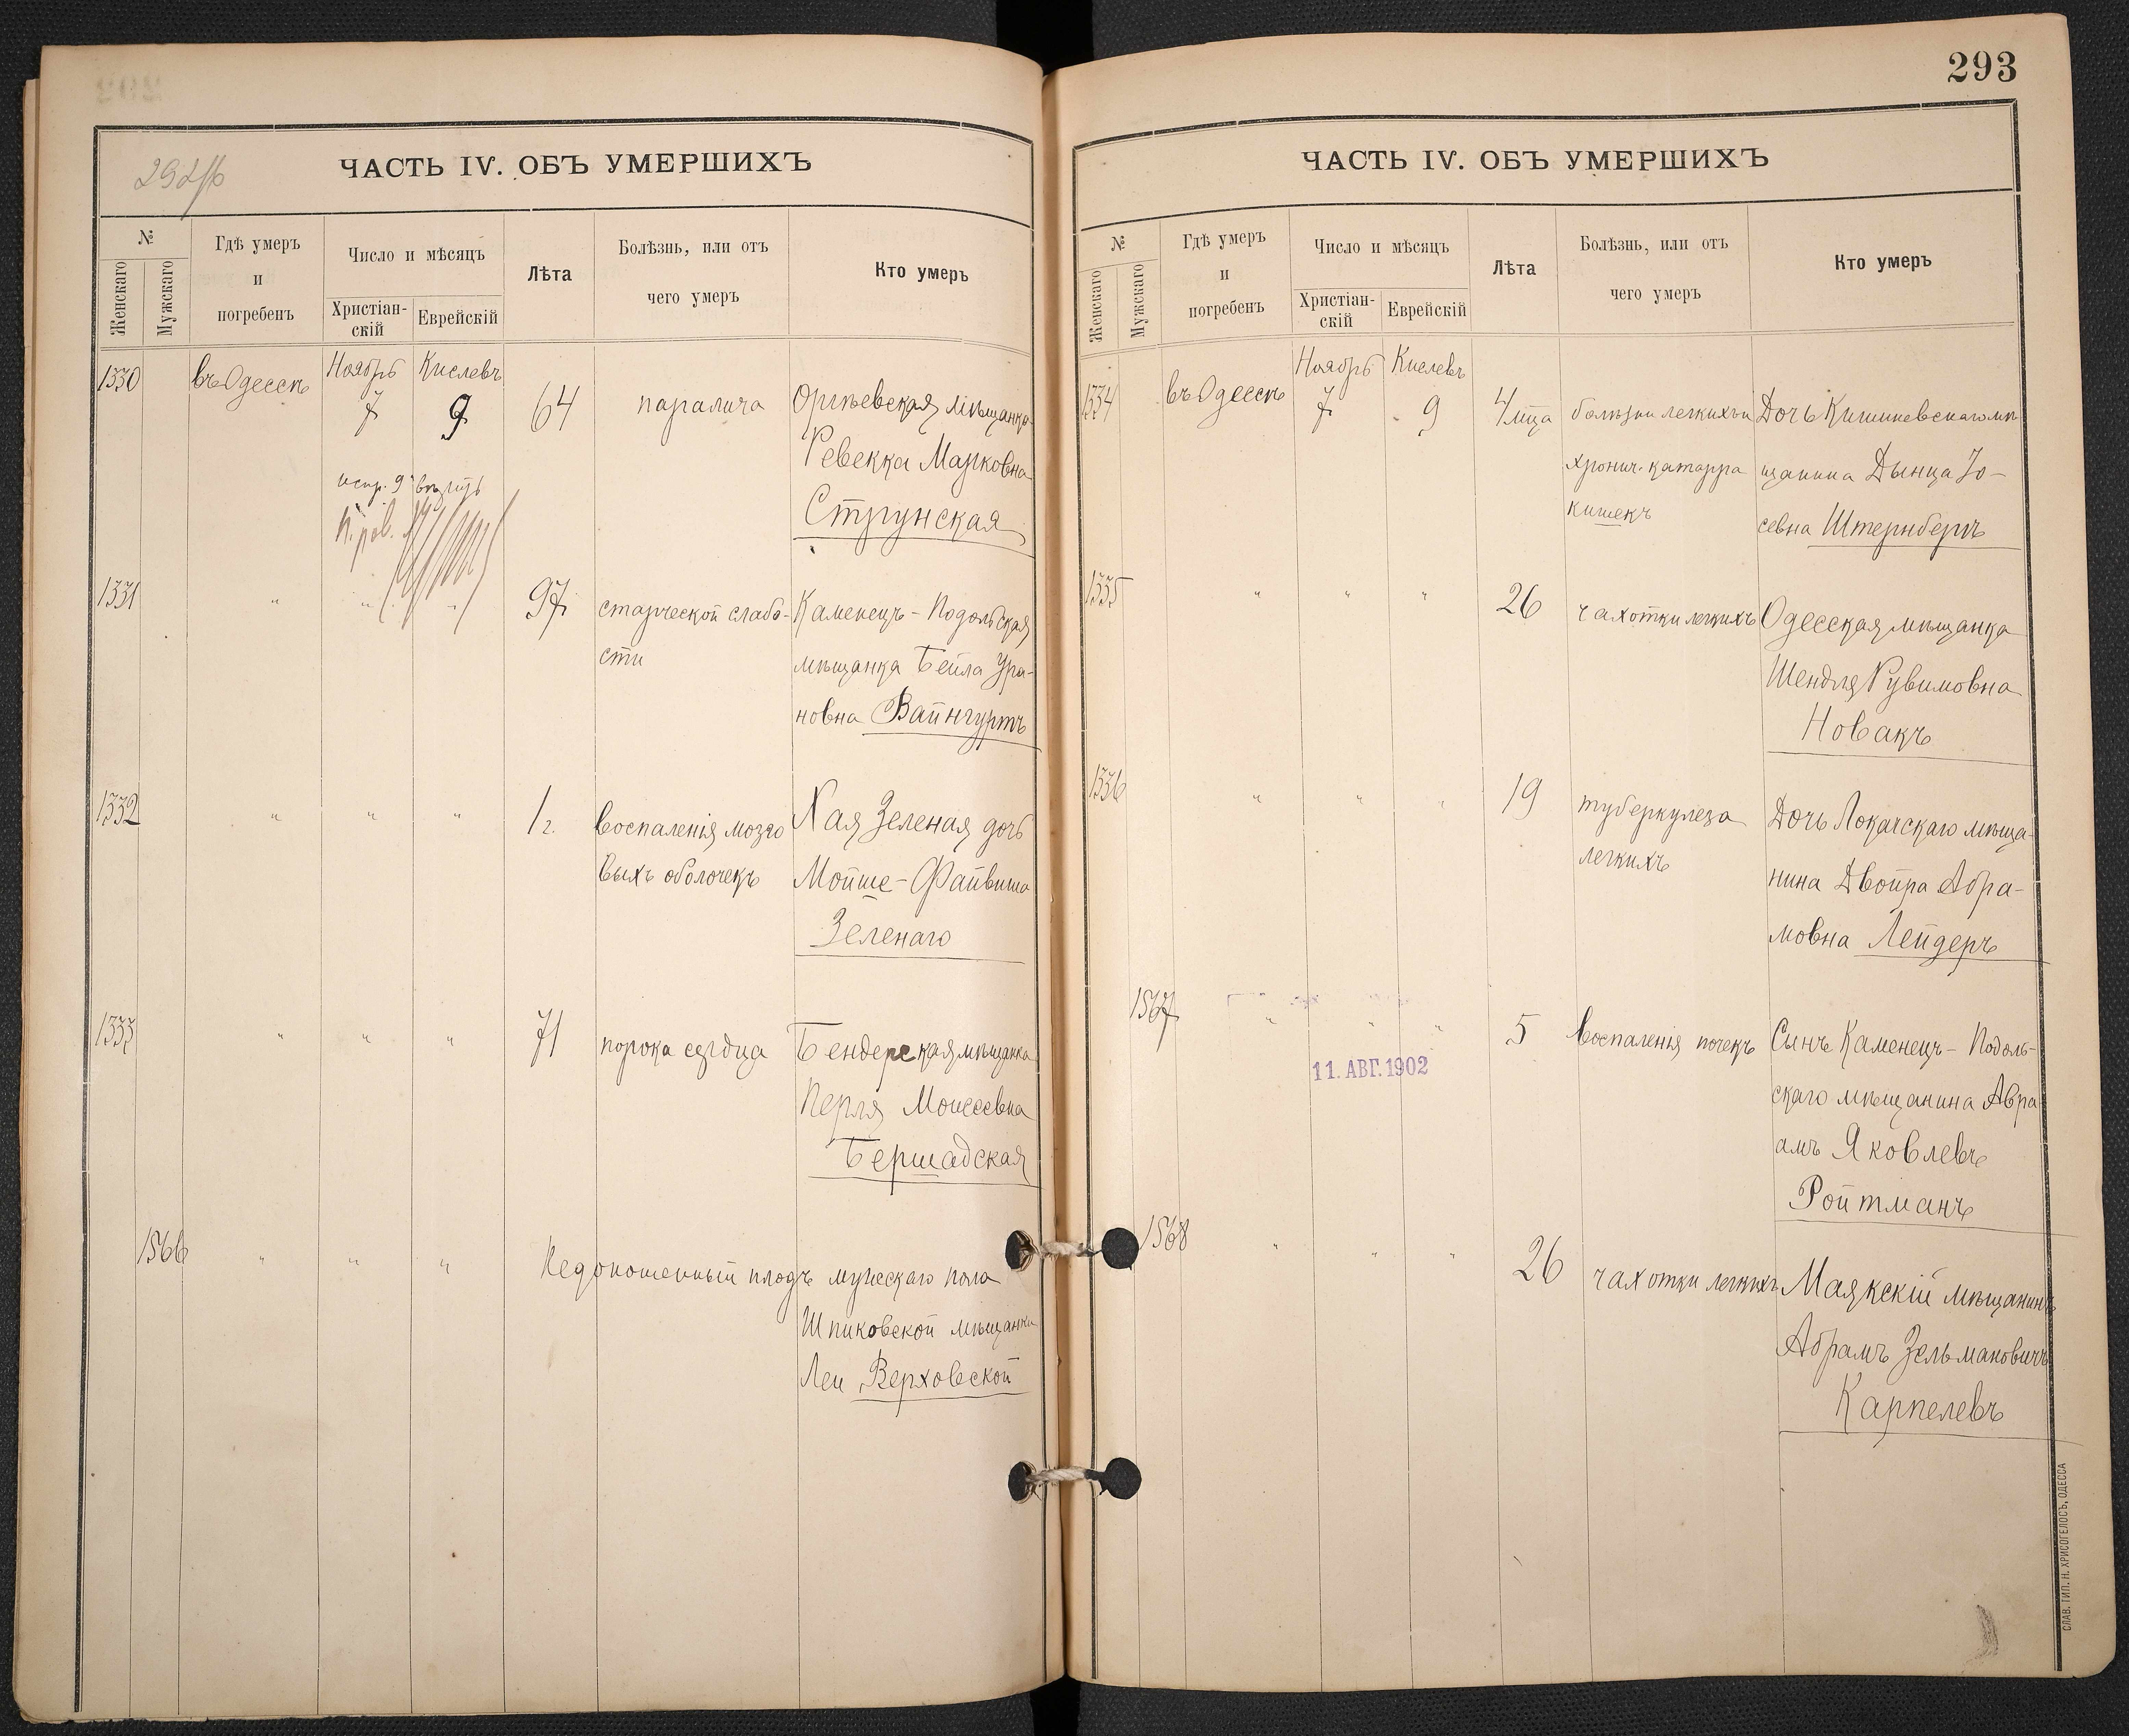 292/б
ЧАСТЬ IV. ОБЪ УМЕРШИХЪ
№
Женскаго
Мужскаго
Гдѣ умеръ
и
погребенъ
Число и мѣсяцъ
Христіан-
скій
Еврейскій
Лѣта
Болѣзнь, или отъ
чего умеръ
Кто умеръ
1330 въ Одессѣ Ноябрь 7 Кислевъ 9 64 паралича Оргѣевская мѣщанка
Ревекка Марковна
Струнская
испр. 9 вѣрить
1331 " " " 97 старческой слабо- Каменецъ-Подольская
сти мѣщанка Бейла Ура-
новна Вайнгуртъ
1332 " " " 1 г. воспаленія мозго Хая Зеленая дочь
выхъ оболочекъ Мойше-Файвиша
Зеленаго
1333 " " " 71 порока сердца Бендерская мѣщанка
Перля Моисеевна
Бершадская
1566 " " " Недоношенный плодъ мужескаго пола
Шпиковской мѣщанки
Леи Верховской
293
ЧАСТЬ IV. ОБЪ УМЕРШИХЪ
№
Женскаго
Мужскаго
Гдѣ умеръ
и
погребенъ
Число и мѣсяцъ
Христіан-
скій
Еврейскій
Лѣта
Болѣзнь, или отъ
чего умеръ
Кто умеръ
1334 въ Одессѣ Ноябрь 7 Кислевъ 9 4 м-ца болѣзни легкихъ и Дочь Кишиневскаго мѣ
хронич. катарра щанина Дынца Іо-
кишекъ севна Штернбергъ
1335 " " " 26 чахотки легкихъ Одесская мѣщанка
Шендля Рувимовна
Новакъ
1336 " " " 19 туберкулеза Дочь Локачскаго мѣща-
легкихъ нина Двойра Абра-
мовна Лейдеръ
1567 " " " 5 воспаленія почекъ Сынъ Каменецъ-Подоль-
11. АВГ. 1902
скаго мѣщанина Авра
амъ Яковлевъ
Ройтманъ
1568 " " " 26 чахотки легкихъ Маякскій мѣщанинъ
Абрамъ Зельмановичъ
Карпелевъ
СЛАВ. ТИП. Н. ХРИСОГЕЛОСЪ, ОДЕССА